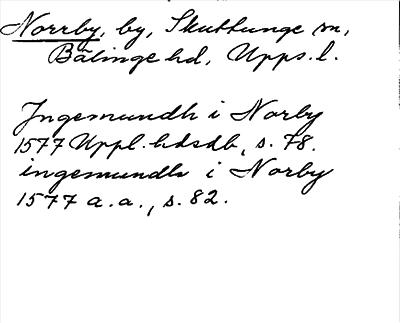 Norrby, by, Skuttunge sn,
Bälinge hd, Upps. l.
Ingemundh i Norby
1577 Uppl. hdsdb, s. 78.
ingemundh i Norby
1577 a. a., s. 82.